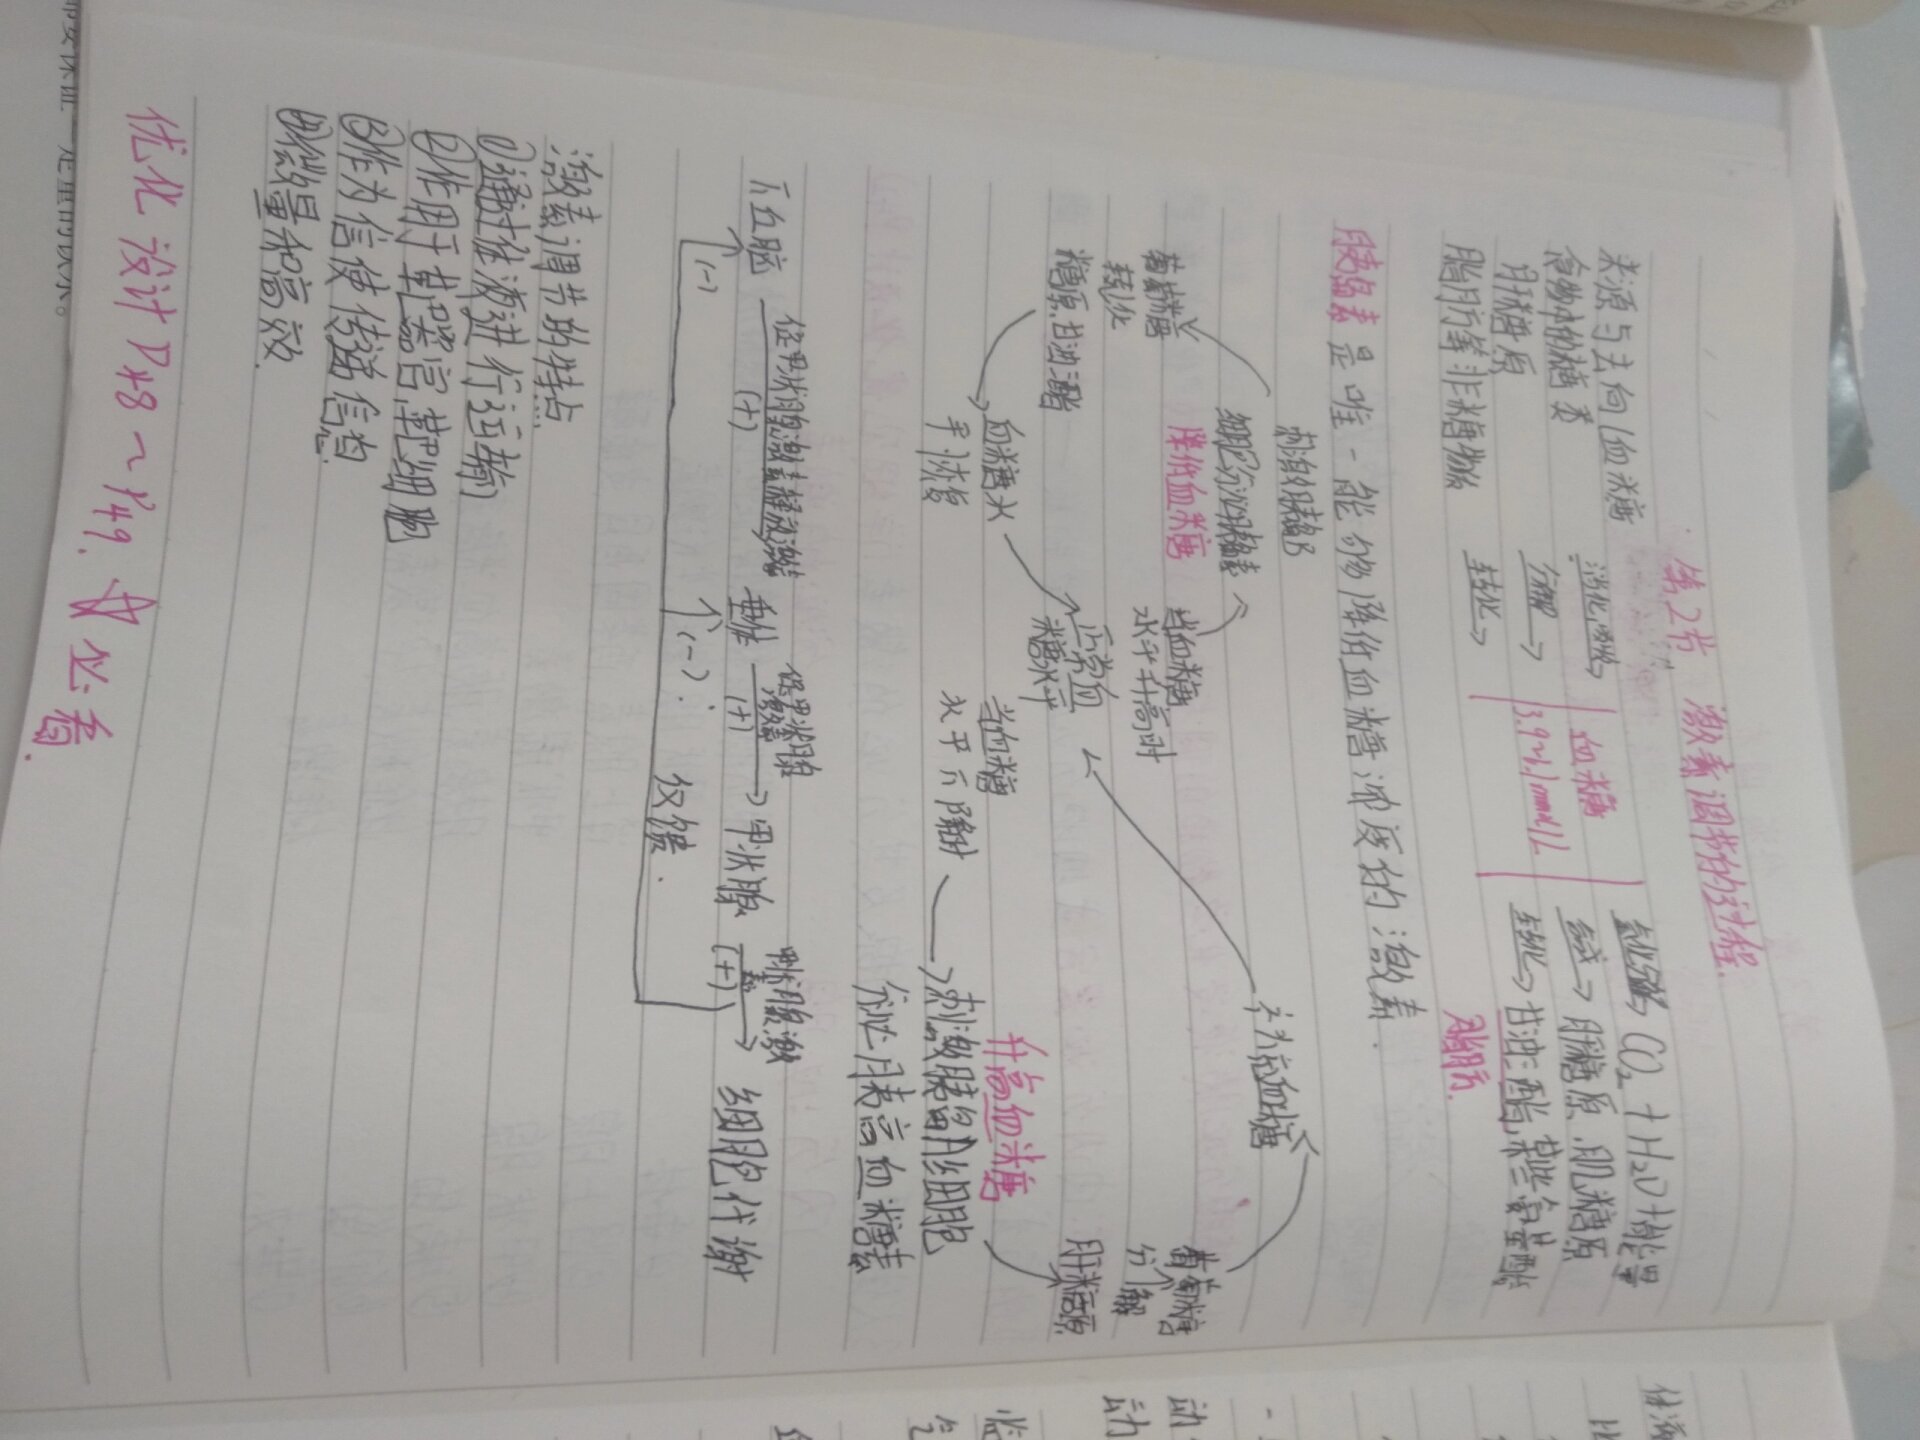 第2节 激素调节的过程.
来源与去向(血糖
食物中的糖类 消化吸收→ 血糖 氧化分解→ CO₂+H₂O+能量
肝糖原 分解→ 3.9~6.1mmol/L 合成→ 肝糖原、肌糖原
脂肪等非糖物质 转化→ 转化→ 甘油三酯、某些氨基酸
脂肪.
胰岛素是唯一能够降低血糖浓度的激素.
刺激胰岛B
细胞分泌胰岛素
降低血糖
当血糖
水平升高时
葡萄糖
转化
糖原、甘油三酯
血糖水
平下降
正常血
糖水平
当血糖
水平下降时
刺激胰岛A细胞
分泌胰高血糖素
升高血糖
肝糖原
分解
葡萄糖
补充血糖
下丘脑 促甲状腺激素释放激素 (+) 垂体 促甲状腺激素 (+) → 甲状腺 甲状腺激素 (+) → 细胞代谢
(-) (-) 反馈.
激素调节的特点
①通过体液进行运输
②作用于靶器官、靶细胞
③作为信使传递信息.
④微量和高效.
优化设计 P48~P49. 必看.